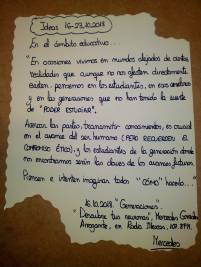 Ideas 16-23.10.2013
En el ámbito educativo...
"En ocasiones vivimos en mundos alejados de ciertas
realidades que aunque no nos afecten directamente
existen, pensemos en los estudiantes, en esos cerebros
y en las generaciones que no han tenido la suerte
de "PODER ESTUDIAR".
Acercar las partes, transmitir conocimientos, es crucial
en el avance del ser humano (PERO RECUERDEN EL
COMPROMISO ÉTICO), y los estudiantes de la generación donde
no encontramos serán las claves de los avances futuros.
Piensen e intenten imaginar todos "CÓMO" hacerlo..."
16.10.2013 "Generaciones"
"Descubre tus neuronas", Mercedes
Arrogante, en Radio
Mercedes